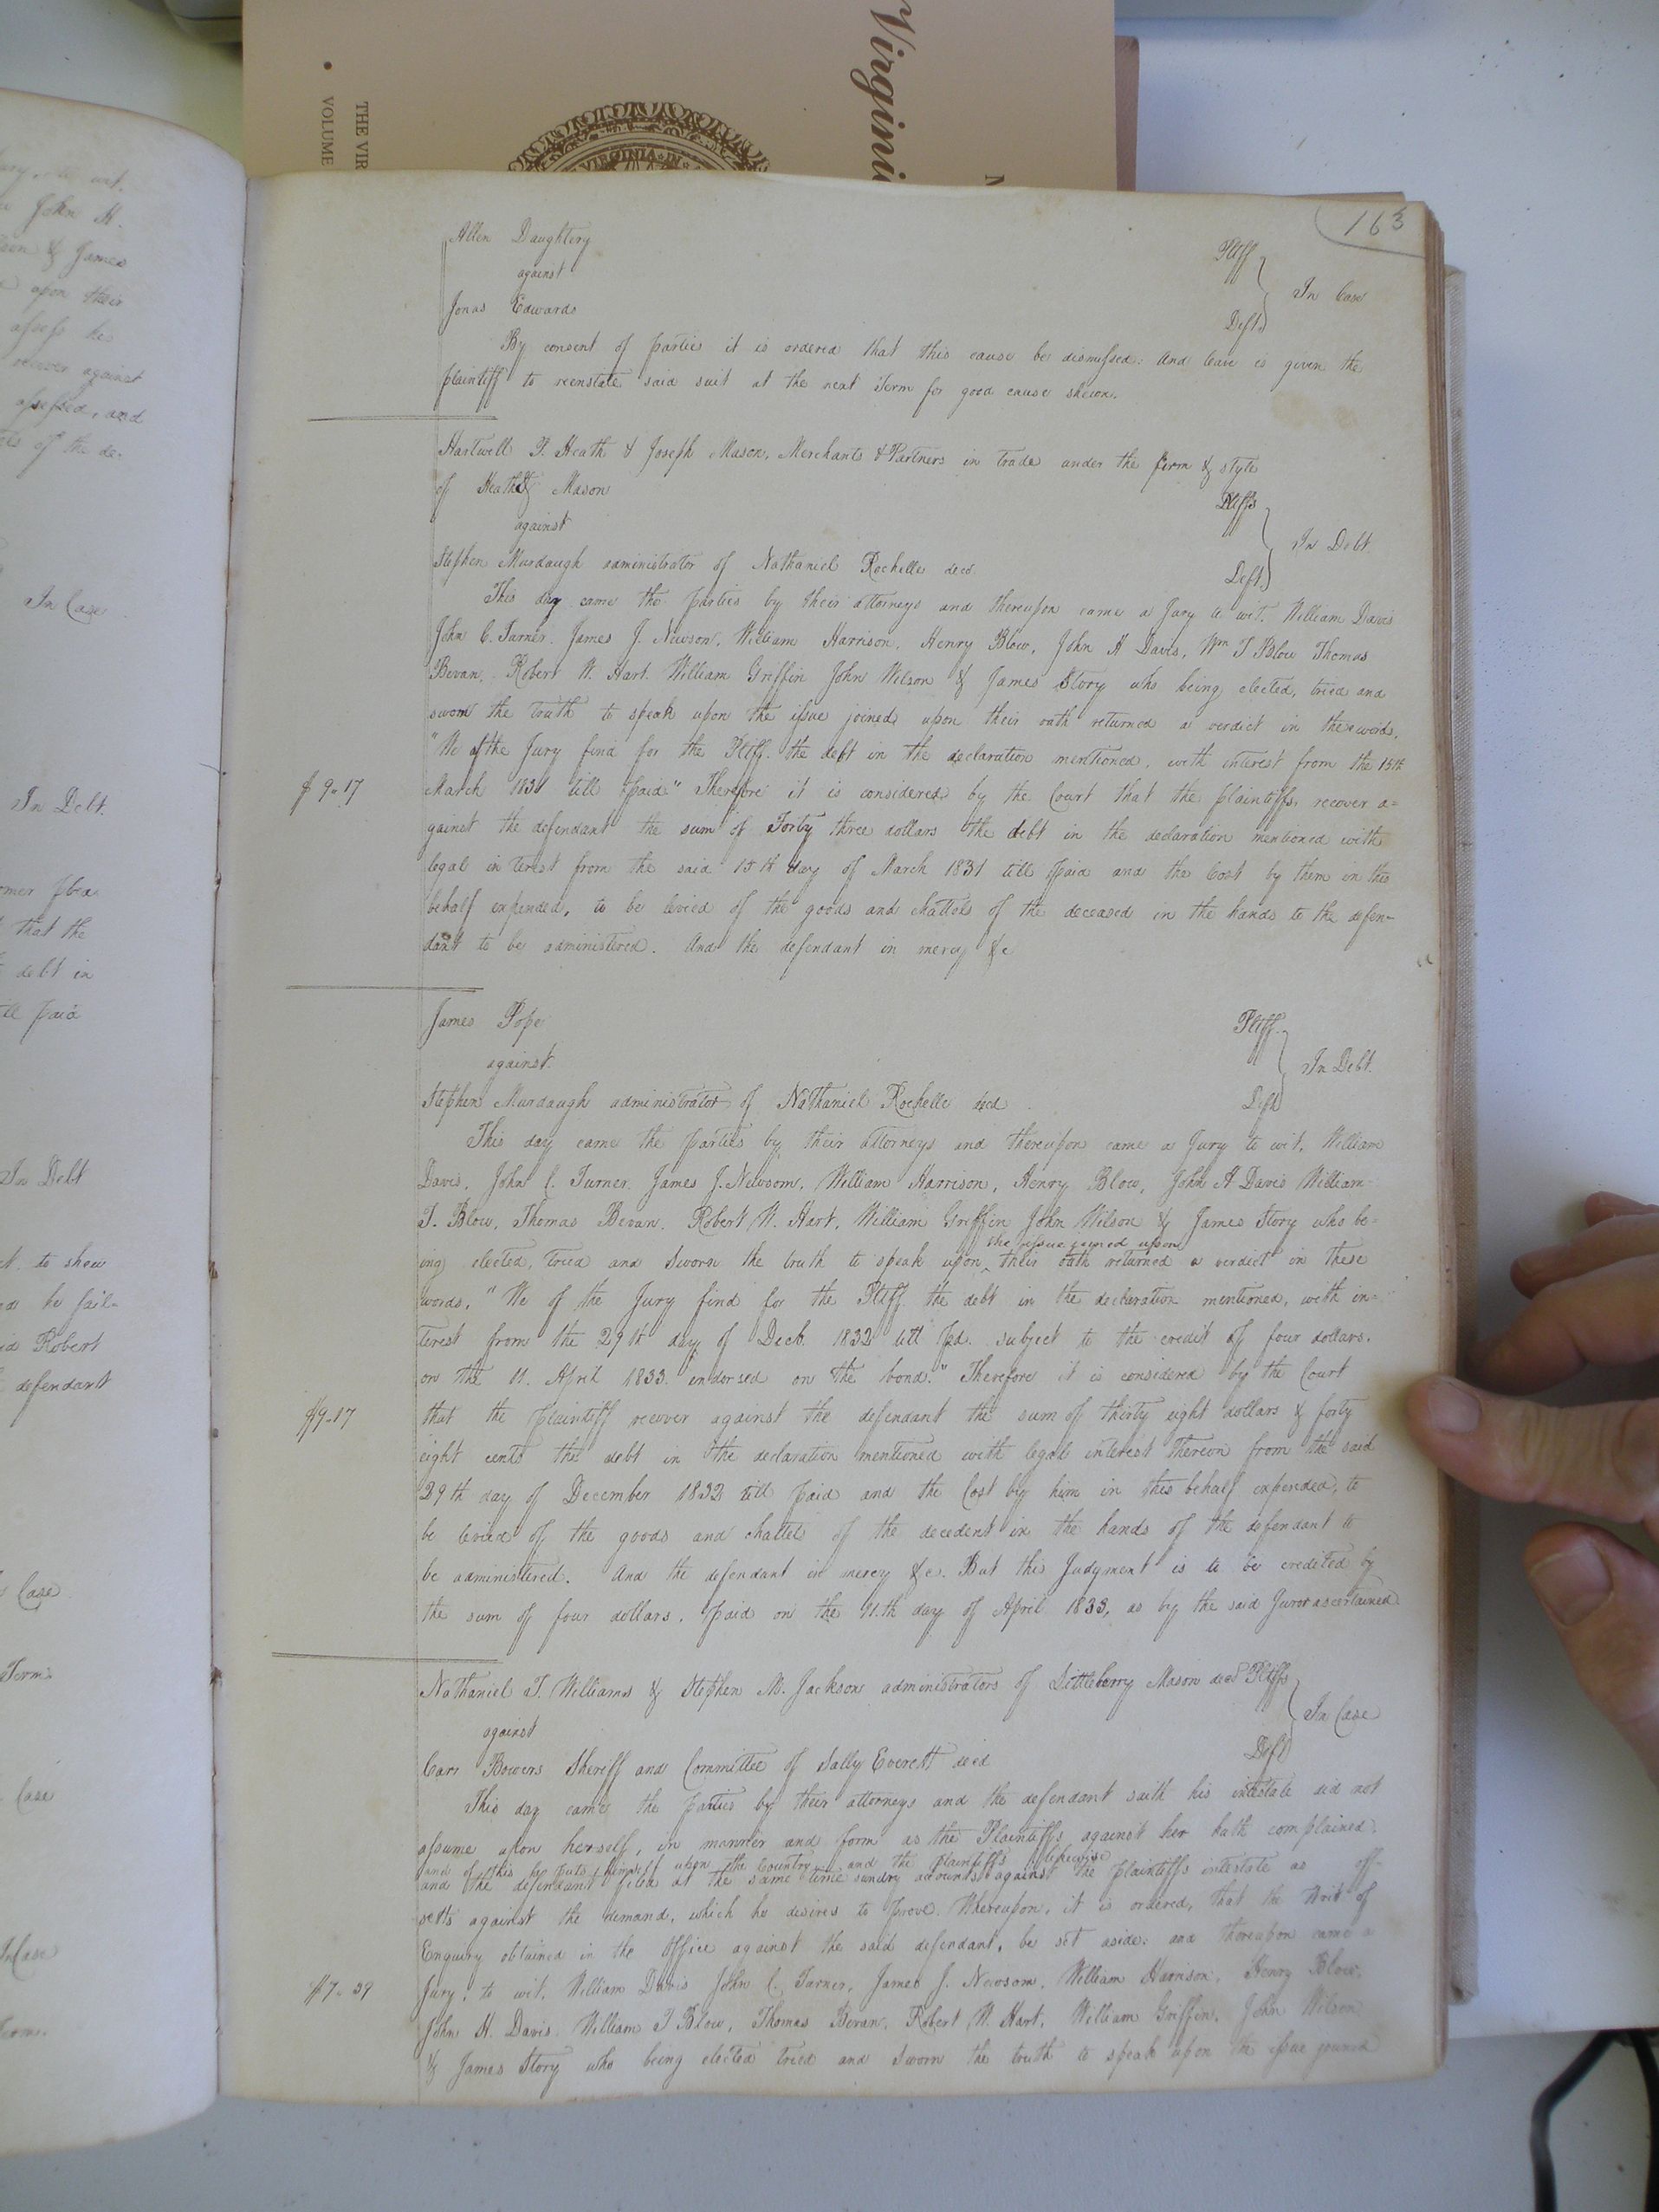 Virgini
THE VIR
VOLUME
VIRGINIA IN
163
Allen Daughtery Pltff
against
Jonas Edwards Deft.
In Case
By consent of parties it is ordered that this cause be dismissed: And leave is given the
plaintiff to reenstate said suit at the next Term for good cause shewn.
Hartwell F. Heath & Joseph Mason, Merchants & Partners in trade under the firm & style
of Heath & Mason Pltffs
against
In Debt
Stephen Murdaugh administrator of Nathaniel Rochelle decd. Deft.
This day came the parties by their attorneys and thereupon came a Jury to wit, William Davis
John C. Turner. James J. Newsom, William Harrison, Henry Blow, John H Davis, Wm T Blow Thomas
Bevan. Robert W. Hart. William Griffin John Wilson & James Story who being elected, tried and
sworn the truth to speak upon the issue joined, upon their oath returned a verdict in these words,
"We of the Jury find for the Pltff. the debt in the declaration mentioned, with interest from the 15th
$ 9.17
March 1831 till paid" Therefore it is considered by the Court that the plaintiffs, recover a=
gainst the defendant the sum of Forty three dollars the debt in the declaration mentioned with
legal interest from the said 15th day of March 1831 till paid and the Cost by them in this
behalf expended, to be levied of the goods and chattels of the deceased in the hands to the defen-
dant to be administered. And the defendant in mercy &c
James Pope Pltff.
against.
In Debt.
Stephen Murdaugh administrator of Nathaniel Rochelle decd Deft
This day came the parties by their attorneys and thereupon came a Jury to wit, William
Davis, John C. Turner. James J. Newsom, William Harrison, Henry Blow, John H Davis William
T. Blow, Thomas Bevan. Robert W. Hart, William Griffin John Wilson & James Story who be=
the issue joined upon
ing elected, tried and Sworn the truth to speak upon ^ their oath returned a verdict in these
words, "We of the Jury find for the Pltff the debt in the declaration mentioned, with in=
terest from the 29th day of Decb. 1832 till pd. subject to the credit of four dollars.
on the 11. April 1833. endorsed on the bond." Therefore it is considered by the Court
$9.17
that the plaintiff recover against the defendant the sum of thirty eight dollars & forty
eight cents the debt in the declaration mentioned with legal interest thereon from the said
29th day of December 1832 till paid and the Cost by him in this behalf expended, to
be levied of the goods and chattels of the decedent in the hands of the defendant to
be administered. And the defendant in mercy &c. But this Judgment is to be credited by
the sum of four dollars, paid on the 11.th day of April 1833, as by the said Juror ascertained
Nathaniel T. Williams & Stephen M. Jackson administrators of Littleberry Mason decd Pltffs
against
In Case
Carr Bowers Sheriff and Committee of Sally Everett decd Deft
This day came the parties by their attorneys and the defendant saith his intestate did not
assume upon herself, in manner and form as the Plaintiffs against her hath complained
and of this he puts himself upon the Country and the plaintiffs likewise
and the defendant filed at the same time sundry accounts against the plaintiffs intestate as off-
setts against the demand, which he desires to prove. Whereupon, it is ordered, that the Writ of
Enquiry obtained in the Office against the said defendant, be set aside; and thereupon came a
$7.39
Jury, to wit, William Davis John C. Turner, James J. Newsom, William Harrison, Henry Blow,
John H. Davis. William T Blow, Thomas Bevan, Robert W. Hart, William Griffin, John Wilson
& James Story who being elected tried and Sworn the truth to speak upon the issue joined